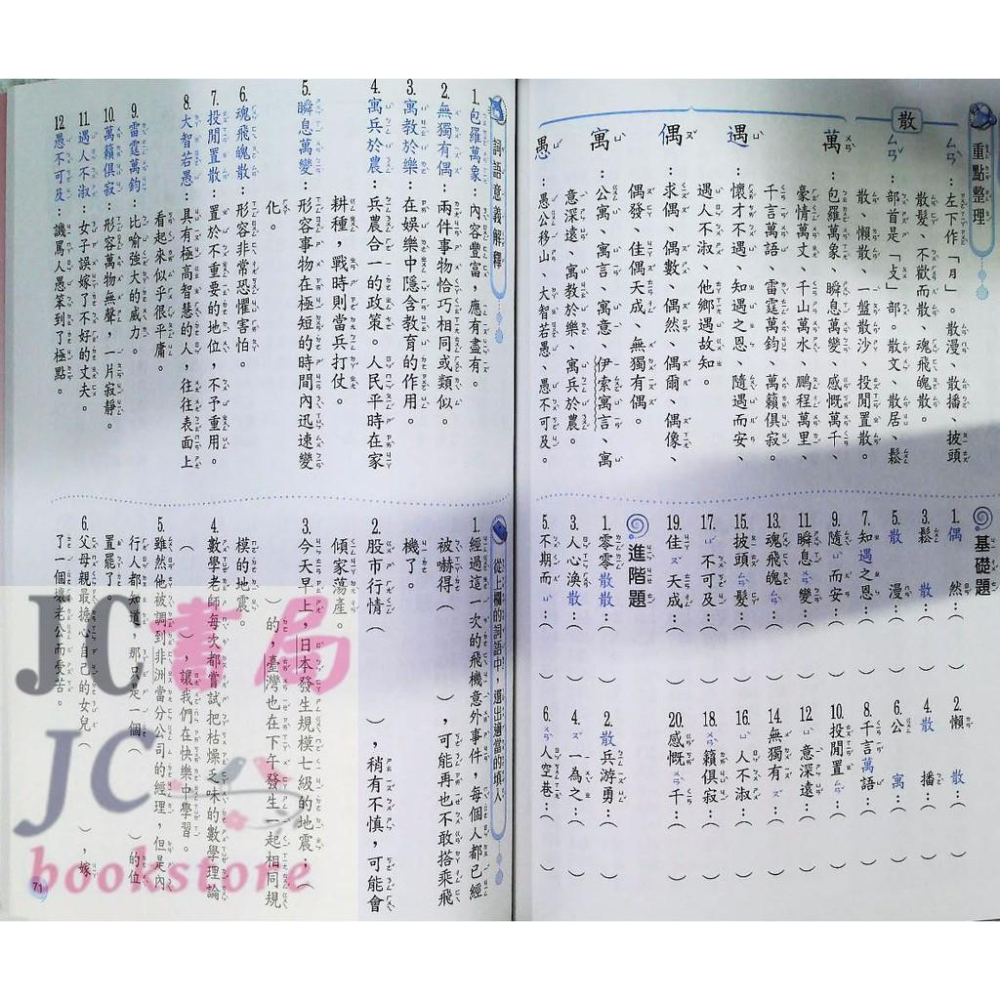 重點整理
散
ㄙㄢˋ：左下作「⺼」。散漫、散播、披頭
散髮、不歡而散、魂飛魄散。
ㄙㄢˇ：部首是「攴」部。散文、散居、鬆
散、懶散、一盤散沙、投閒置散。
萬 ㄨㄢˋ：包羅萬象、瞬息萬變、感慨萬千、
豪情萬丈、千山萬水、鵬程萬里、
千言萬語、雷霆萬鈞、萬籟俱寂。
遇 ㄩˋ：懷才不遇、知遇之恩、隨遇而安、
遇人不淑、他鄉遇故知。
偶 ㄡˇ：求偶、偶數、偶然、偶爾、偶像、
偶發、佳偶天成、無獨有偶。
寓 ㄩˋ：公寓、寓言、寓意、伊索寓言、寓
意深遠、寓教於樂、寓兵於農。
愚 ㄩˊ：愚公移山、大智若愚、愚不可及。
基礎題
1. 偶 然：（ ）
2. 懶 散：（ ）
3. 鬆 散：（ ）
4. 散 播：（ ）
5. 散 漫：（ ）
6. 公 寓：（ ）
7. 知遇之恩：（ ）
8. 千言萬語：（ ）
9. 隨ㄩˋ而安：（ ）
10. 投閒置ㄙㄢˇ：（ ）
11. 瞬息ㄨㄢˋ變：（ ）
12. ㄩˋ意深遠：（ ）
13. 魂飛魄ㄙㄢˋ：（ ）
14. 無獨有ㄡˇ：（ ）
15. 披頭ㄙㄢˋ髮：（ ）
16. ㄩˋ人不淑：（ ）
17. ㄩˊ不可及：（ ）
18. ㄨㄢˋ籟俱寂：（ ）
19. 佳ㄡˇ天成：（ ）
20. 感慨ㄨㄢˋ千：（ ）
進階題
1. 零零散散：（ ）
2. 散兵游勇：（ ）
3. 人心渙散：（ ）
4. ㄡˇ一為之：（ ）
5. 不期而ㄩˋ：（ ）
6. ㄨㄢˋ人空巷：（ ）
詞語意義解釋
1. 包羅萬象：內容豐富，應有盡有。
2. 無獨有偶：兩件事物恰巧相同或類似。
3. 寓教於樂：在娛樂中隱含教育的作用。
4. 寓兵於農：兵農合一的政策。人民平時在家
耕種，戰時則當兵打仗。
5. 瞬息萬變：形容事物在極短的時間內迅速變
化。
6. 魂飛魄散：形容非常恐懼害怕。
7. 投閒置散：置於不重要的地位，不予重用。
8. 大智若愚：具有極高智慧的人，往往表面上
看起來似乎很平庸。
9. 雷霆萬鈞：比喻強大的威力。
10. 萬籟俱寂：形容萬物無聲，一片寂靜。
11. 遇人不淑：女子誤嫁了不好的丈夫。
12. 愚不可及：譏罵人愚笨到了極點。
從上欄的詞語中，選出適當的填入
1. 經過這一次的飛機意外事件，每個人都已經
被嚇得（ ），可能再也不敢搭乘飛
機了。
2. 股市行情（ ），稍有不慎，可能會
傾家蕩產。
3. 今天早上，日本發生規模七級的地震；（
）的，臺灣也在下午發生一起相同規
模的地震。
4. 數學老師每次都嘗試把枯燥乏味的數學理論
（ ），讓我們在快樂中學習。
5. 雖然他被調到非洲當分公司的經理，但是內
行人都知道，那只是一個（ ）的位
置罷了。
6. 父母親最擔心自己的女兒（ ），嫁
了一個壞老公而受苦。
71
JC書局
JC
bookstore